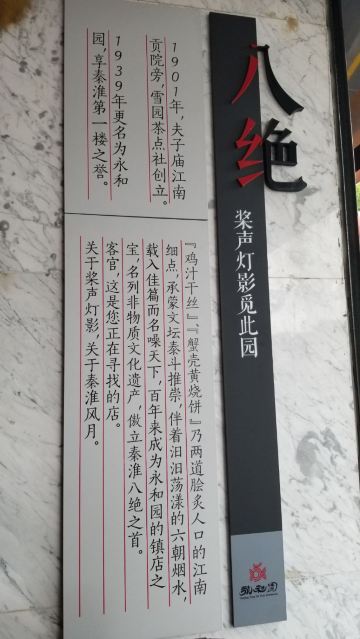 八绝
桨声灯影觅此园
1901年，夫子庙江南
贡院旁，雪园茶点社创立。
1939年更名为永和
园，享秦淮第一楼之誉。
『鸡汁干丝』、『蟹壳黄烧饼』乃两道脍炙人口的江南
细点，承蒙文坛泰斗推崇，伴着汩汩荡漾的六朝烟水，
载入佳篇而名噪天下，百年来成为永和园的镇店之
宝，名列非物质文化遗产，傲立秦淮八绝之首。
客官，这是您正在寻找的店。
关于桨声灯影，关于秦淮风月。
永和園